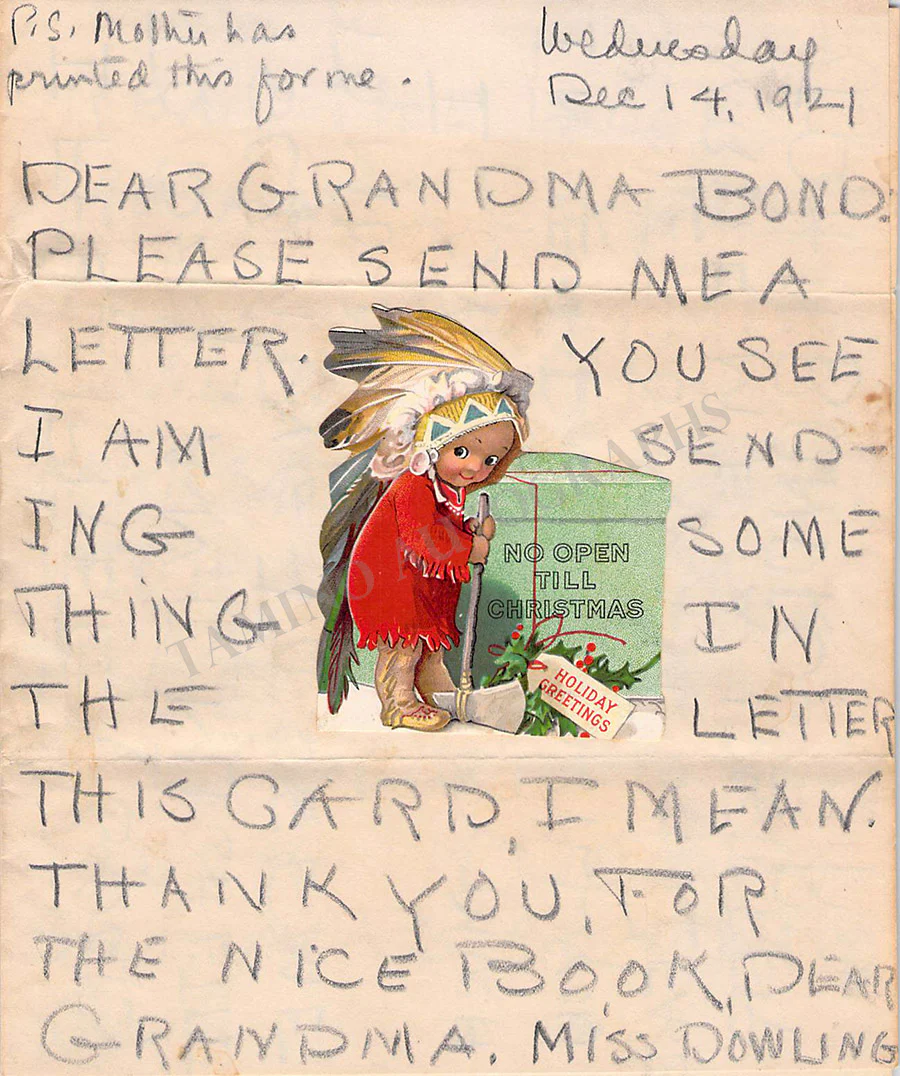 P.S. Mother has
printed this for me.
Wednesday
Dec 14, 1921
DEAR GRANDMA BOND.
PLEASE SEND ME A
LETTER. YOU SEE
I AM SEND-
ING SOME
THING IN
THE LETTER
THIS CARD, I MEAN.
THANK YOU, FOR
THE NICE BOOK, DEAR
GRANDMA. MISS DOWLING
NO OPEN
TILL
CHRISTMAS
HOLIDAY
GREETINGS
TAMINO AUTOGRAPHS